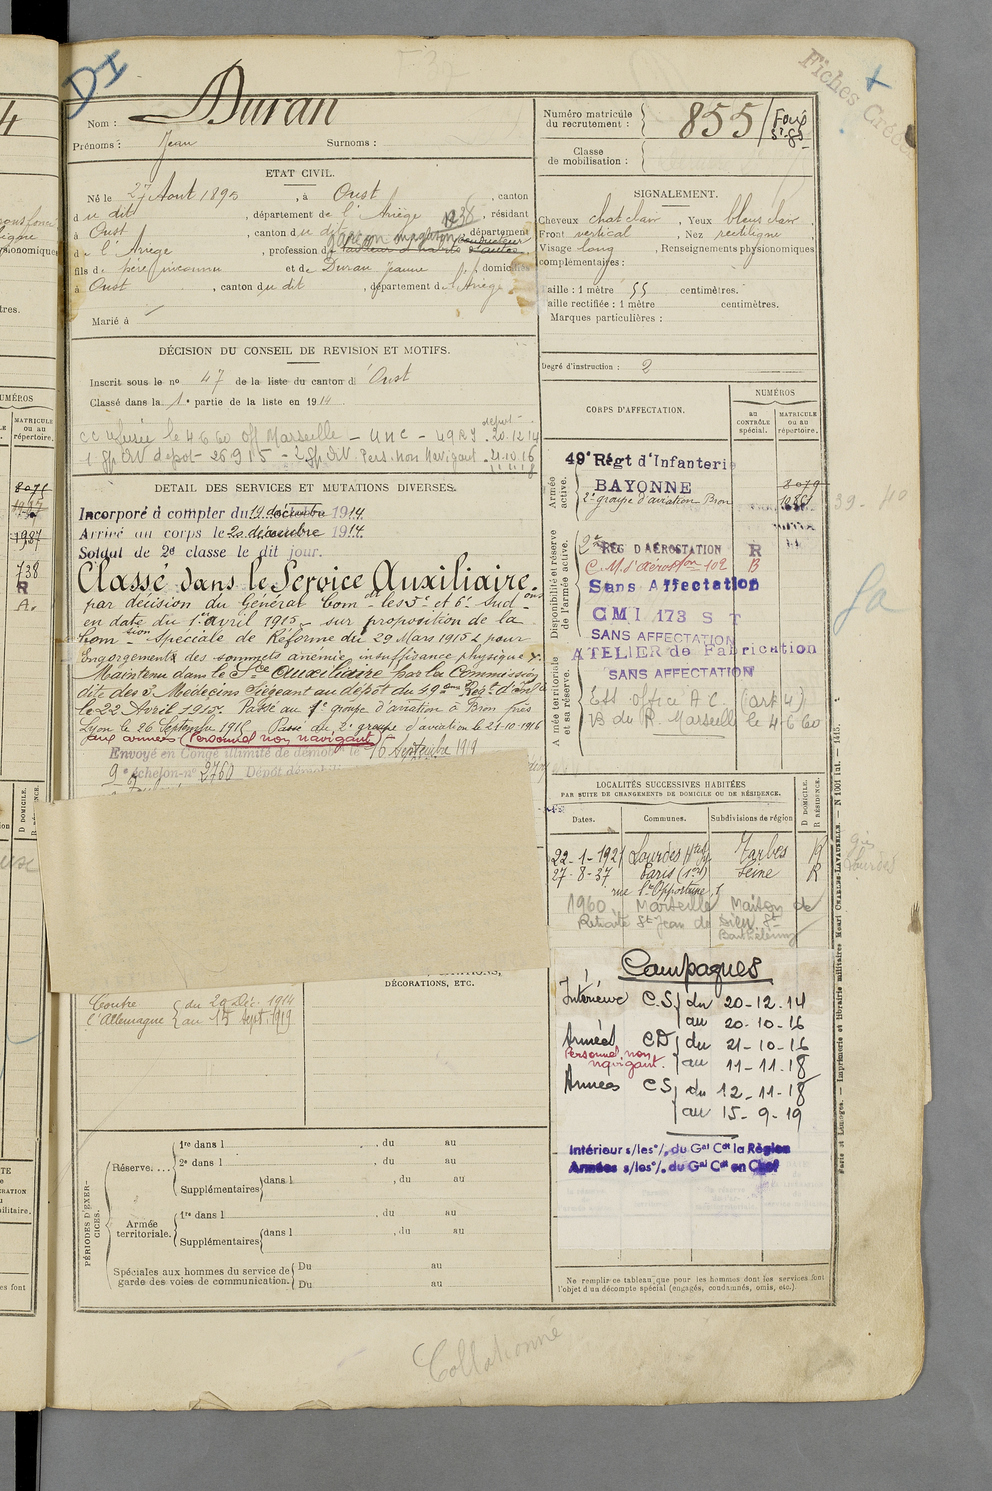 DI
Fiches
Duran
Nom :
Prénoms : Jean Surnoms :
ETAT CIVIL.
Né le 27 Aout 1895, à Oust, canton
du dit, département de l'Ariège, résidant
à Oust, canton du dit, département
de l'Ariège, profession de
fils de père inconnu et de Duran Jeanne domiciliés
à Oust, canton du dit, département d Ariège
Marié à
DÉCISION DU CONSEIL DE REVISION ET MOTIFS.
Inscrit sous le no 47 de la liste du canton d Oust
Classé dans la 1e partie de la liste en 1914
le 4 6 60 off Marseille - UNC - 49 RI dépot - 20.12.14
1 gp AV depot - 26 9 15 - 2 gp AV Pers. Non Navigant - 21.10.16
11.11.18
DETAIL DES SERVICES ET MUTATIONS DIVERSES.
Incorporé à compter du 19 décembre 1914.
Arrivé au corps le 20 décembre 1914.
Soldat de 2e classe le dit jour.
Classé dans le Service Auxiliaire.
par décision du Général Com dt les 5e et 6e Sud ons
en date du 1er avril 1915, sur proposition de la
Com tion Spéciale de Réforme du 29 Mars 1915 pour
Engorgements des sommets anémie insuffisance physique
Maintenu dans le Sce Auxiliaire par la Commission
dite des 3 Médecins Siégeant au dépôt du 49ème Régt d'Infie
le 22 Avril 1915. Passé au 1er groupe d'aviation à Bron près
Lyon le 26 Septembre 1915 Passé au 2e groupe d'aviation le 21-10-1916
aux armées (Personnel non navigant)
Envoyé en Congé illimité de démob le 16 Septembre 191
9e échelon no 2760 Dépôt démobili
DÉCORATIONS, ETC.
Contre { du 20 Déc. 1914
l'Allemagne { au 15 Sept. 1919
PÉRIODES D'EXERCICES.
Réserve....
1re dans l , du au
2e dans l , du au
Supplémentaires dans l , du au
Armée territoriale.
1re dans l , du au
Supplémentaires dans l , du au
Spéciales aux hommes du service de garde des voies de communication.
Du au
Du au
Collationné
Numéro matricule du recrutement : 855
Classe de mobilisation :
SIGNALEMENT.
Cheveux chat clair, Yeux bleus clair
Front vertical, Nez rectiligne
Visage long, Renseignements physionomiques
complémentaires :
Taille : 1 mètre 55 centimètres.
Taille rectifiée : 1 mètre centimètres.
Marques particulières :
Degré d'instruction : 2
CORPS D'AFFECTATION.
NUMÉROS
au CONTRÔLE spécial.
MATRICULE ou au répertoire.
Armée active.
49e Régt d'Infanterie
BAYONNE
8079
2e groupe d'aviation Bron
39 - 40
Disponibilité et réserve de l'armée active.
2e RÉG D'AÉROSTATION R
C.M. d'Aéroston 102 R
Sans Affectation
CMI 173 S T
SANS AFFECTATION
Armée territoriale et sa réserve.
ATELIER de Fabrication
SANS AFFECTATION
Est office A C. (art 4)
B du R. Marseille le 4-6-60
LOCALITÉS SUCCESSIVES HABITÉES
PAR SUITE DE CHANGEMENTS DE DOMICILE OU DE RÉSIDENCE.
Dates. Communes. Subdivisions de région
D DOMICILE.
R RÉSIDENCE.
22-1-1921 Lourdes Tarbes R
27-8-37 Paris (1er) Seine R
rue Ste Opportune
1960 Marseille Maison de
Retraite St Jean de Dieu St
Barthélémy
Campagnes
Intérieur C.S. { du 20-12-14
au 20-10-16
Armées CD { du 21-10-16
Personnel non navigant. au 11-11-18
Armées CS { du 12-11-18
au 15-9-19
Intérieur s/les o/. du Gal Cdt la Région
Armées s/les o/. du Gal Cdt en Chef
Ne remplir ce tableau que pour les hommes dont les services font
l'objet d'un décompte spécial (engagés, condamnés, omis, etc.).
Paris et Limoges. — Imprimerie et librairie militaires Henri CHARLES-LAVAUZELLE. — N 1001 bis. — 1415.
NUMÉROS
MATRICULE ou au répertoire.
8075
1927
738
R